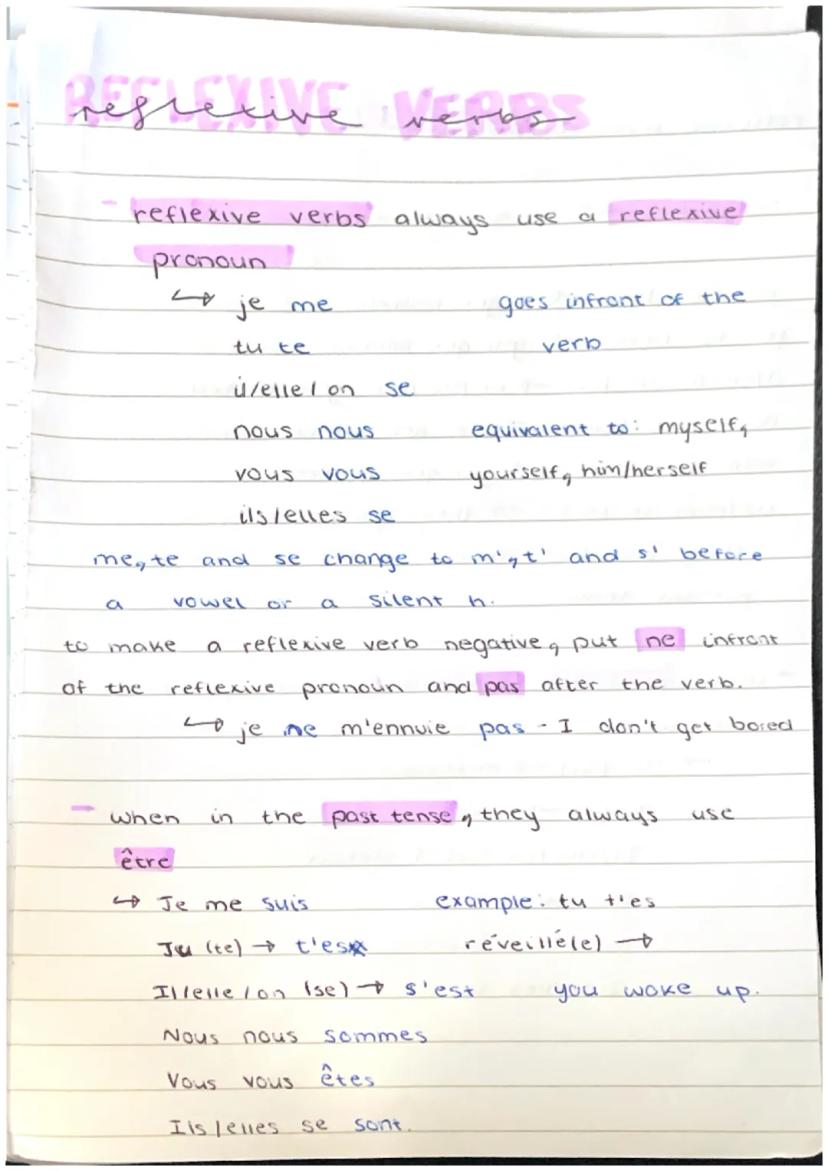 REFLEXIVE VERBS
reflexive verbs
- reflexive verbs always use a reflexive
pronoun
↳ je me goes infront of the
tu te verb
il/elle/on se
nous nous equivalent to: myself,
vous vous yourself, him/herself
ils/elles se
me, te and se change to m', t' and s' before
a vowel or a silent h.
to make a reflexive verb negative, put ne infront
of the reflexive pronoun and pas after the verb.
↳ je ne m'ennuie pas - I don't get bored
- when in the past tense, they always use
être
↳ Je me suis example: tu t'es
Tu (te) → t'es réveillé(e) →
Il/elle/on (se) → s'est you woke up.
Nous nous sommes
Vous vous êtes
Ils/elles se sont.